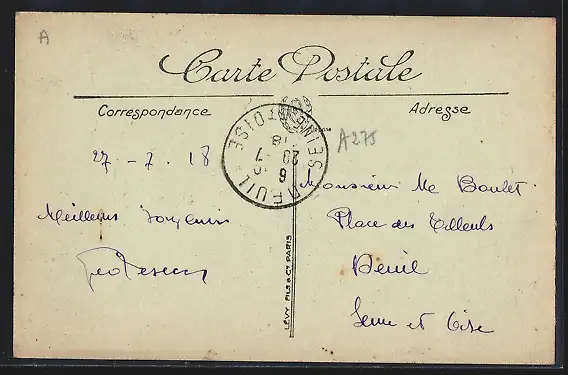 A
Carte Postale
Correspondance
Adresse
SEINE ET OISE
DEUIL
6
29 -7
18
A275
27 - 7. 18
Meilleurs souvenirs
Monsieur Me Boulet
Place des Tilleuls
Deuil
Seine et Oise
LÉVY FILS & Cie PARIS